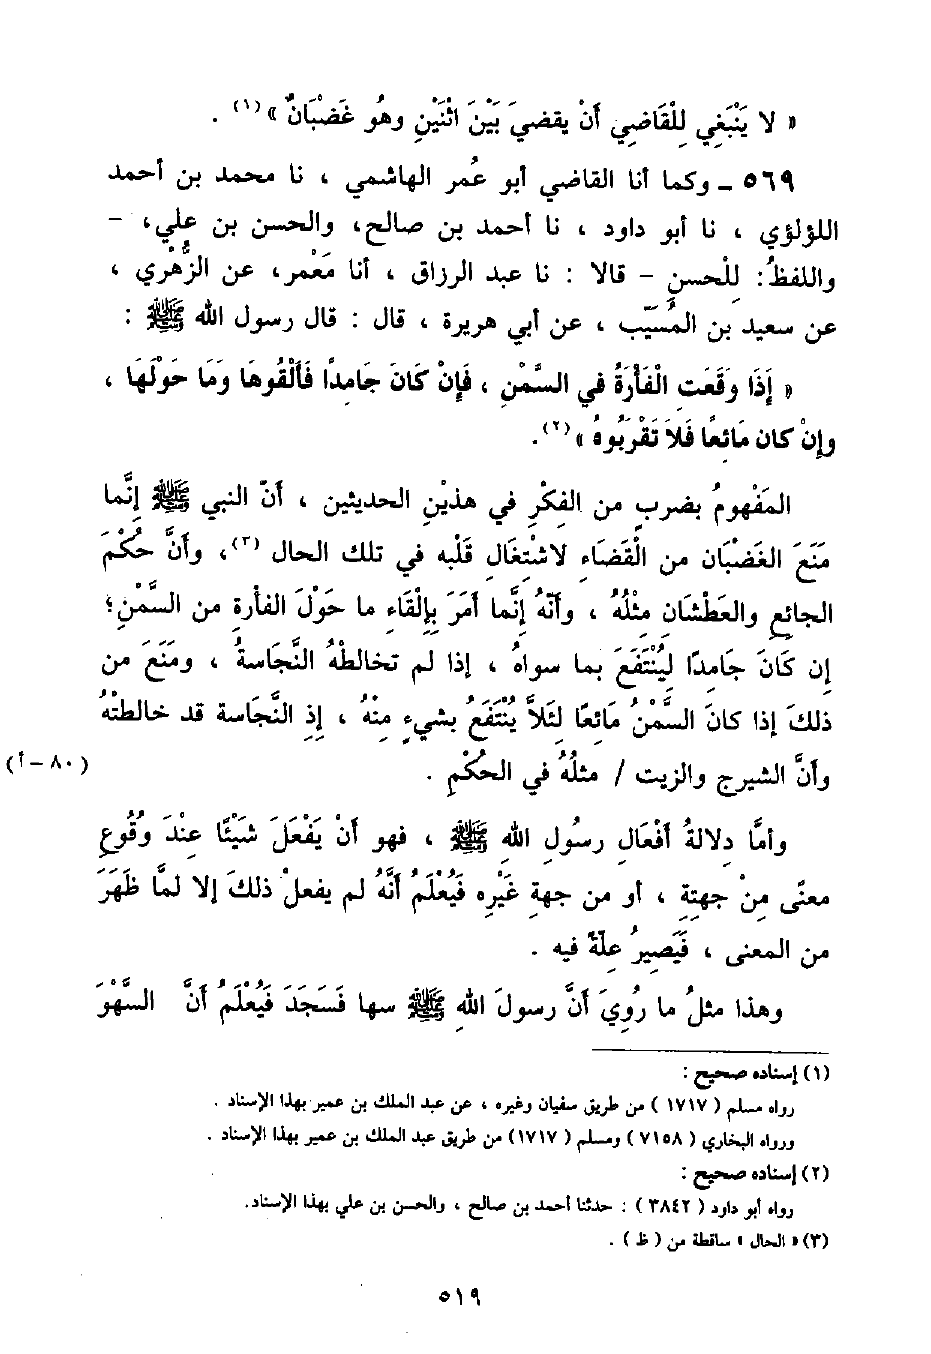 « لا يَنْبَغِي لِلْقَاضِي أَنْ يقضيَ بَيْنَ اثْنَيْنِ وهُو غَضْبَانٌ » (١) .
٥٦٩ ـ وكما أنا القاضي أبو عُمر الهاشمي ، نا محمد بن أحمد
اللؤلؤي ، نا أبو داود ، نا أحمد بن صالح، والحسن بن علي، -
واللفظُ: لِلْحسنِ - قالا : نا عبد الرزاق ، أنا مَعْمر، عن الزُّهْري ،
عن سعيد بن المُسَيّب ، عن أبي هريرة ، قال : قال رسول الله ﷺ :
« إِذَا وَقَعَت الْفَأْرَةُ في السَّمْنِ ، فَإِنْ كَانَ جَامِدًا فَأَلْقُوهَا وَمَا حَوْلَهَا ،
وإِنْ كان مَائعًا فَلاَ تَقْرَبُوهُ »(٢).
المَفْهومُ بضربٍ من الفِكْرِ في هذيْنِ الحديثين ، أَنّ النبي ﷺ إِنَّما
مَنَعَ الغَضْبَان من الْقَضَاءِ لاشْتغَالِ قَلْبه في تلك الحال (٣)، وأَنَّ حُكْمَ
الجائعِ والعَطْشَان مثْلُهُ ، وأَنّهُ إِنَّما أَمَرَ بإِلْقَاءِ ما حَوْلَ الفأرةِ من السَّمْنِ؛
إِن كَانَ جَامِدًا لِيُنْتَفَعَ بما سواهُ ، إذا لم تخالطْهُ النَّجَاسةُ ، ومَنَعَ من
ذلكَ إذا كانَ السَّمْنُ مَائعًا لئَلاَّ يُنْتَفَعُ بشيءٍ منْهُ ، إِذِ النَّجاسة قد خالطتْهُ
وأَنَّ الشيرج والزيت / مثلُهُ في الحُكْمِ .
(٨٠ - أ)
وأمَّا دِلالةُ أَفْعَالِ رسُول الله ﷺ ، فهو أَنْ يَفْعَلَ شَيْئًا عِنْدَ وُقُوعِ
معنًى مِنْ جهتِهِ ، أو من جهةِ غَيْرِه فَيُعْلَمُ أَنَّهُ لم يفعلْ ذلكَ إلا لمَّا ظَهَرَ
من المعنى ، فَيَصِيرُ عِلَّةً فيه .
وهذا مثلُ ما رُوِيَ أَنَّ رسولَ اللهِ ﷺ سها فَسَجَدَ فَيُعْلَمُ أَنَّ السَّهْوَ
(١) إسناده صحيح :
رواه مسلم ( ١٧١٧ ) من طريق سفيان وغيره ، عن عبد الملك بن عمير بهذا الإسناد .
ورواه البخاري ( ٧١٥٨ ) ومسلم ( ١٧١٧) من طريق عبد الملك بن عمير بهذا الإسناد .
(٢) إسناده صحيح :
رواه أبو داود ( ٣٨٤٢ ) : حدثنا أحمد بن صالح ، والحسن بن علي بهذا الإسناد.
(٣) « الحال » ساقطة من ( ظ ) .
٥١٩